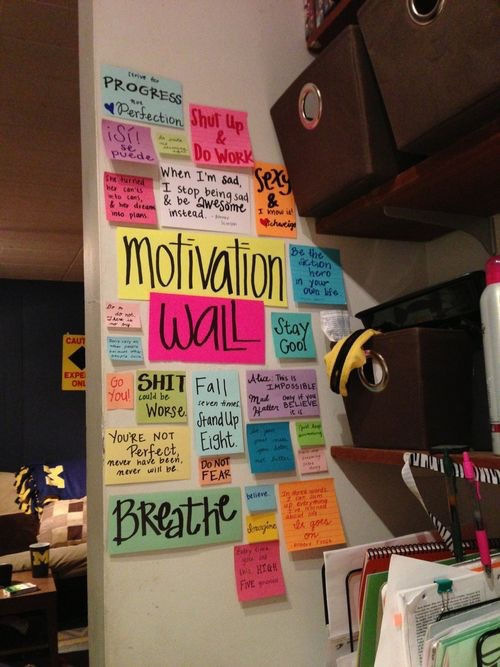 Strive for
PROGRESS
not
Perfection
¡Sí!
se
puede
Shut Up
&
Do Work
She turned
her can'ts
into cans,
& her dreams
into plans.
When I'm sad,
I stop being sad
& be awesome
instead. - Barney
Stinson
Sexy
&
I know it!
Schweige
motivation
WALL
Be the
action
hero
in your
own life.
Do or
do not.
There is
no try.
Stay
Cool
Go
You!
SHIT
could be
Worse.
Fall
seven times,
Stand Up
Eight.
Alice: This is
IMPOSSIBLE
Mad
Hatter: Only if you
BELIEVE
it is
YOU'RE NOT
Perfect,
never have been,
never will be.
DO NOT
FEAR
Breathe
believe.
Imagine
In three words
I can sum
up everything
I've learned
about life:
it goes
on
Robert Frost
Every time
you do
this, HIGH
FIVE yourself
CAUT
EXPE
ONL